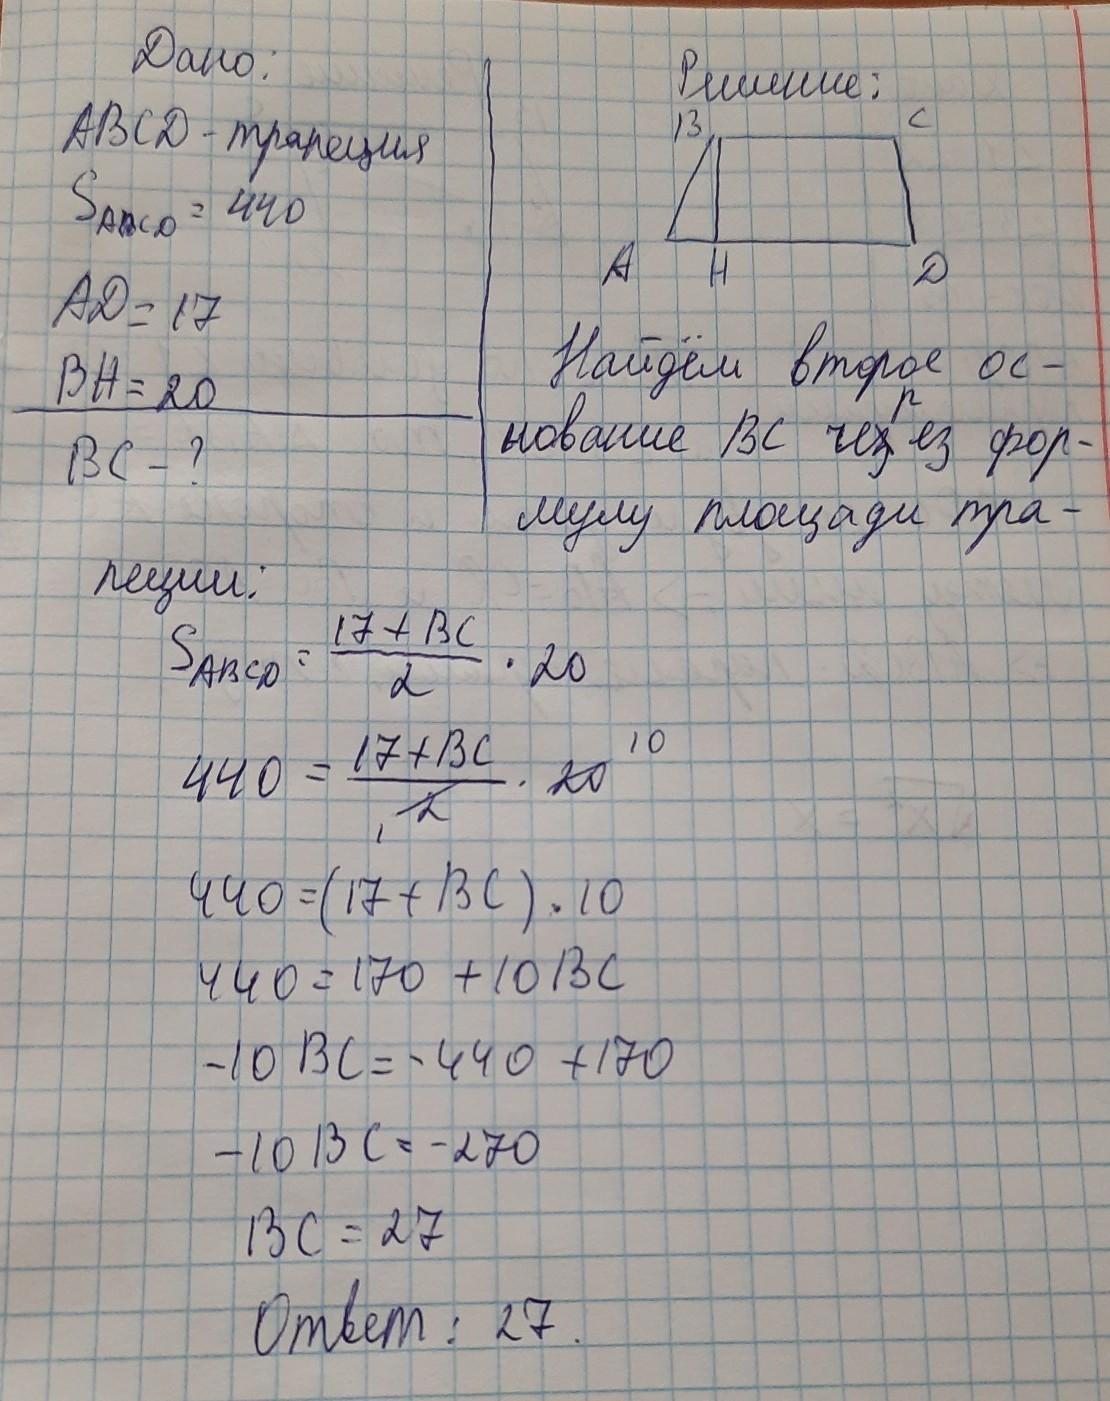 Дано:
ABCD - трапеция
S ABCD = 440
AD = 17
BH = 20
BC - ?
Решение:
B C
A H D
Найдём второе ос-
нование BC через фор-
мулу площади тра-
пеции:
S ABCD = (17 + BC)/2 · 20
440 = (17 + BC)/2 · 20 10
1
440 = (17 + BC) · 10
440 = 170 + 10 BC
-10 BC = -440 + 170
-10 BC = -270
BC = 27
Ответ: 27.